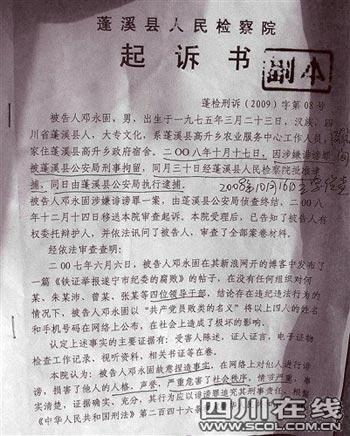 蓬溪县人民检察院
起诉书
副本
蓬检刑诉(2009)字第08号
被告人邓永固,男,出生于一九七五年三月二十三日,汉族,四
川省蓬溪县人,大专文化,系蓬溪县高升乡农业服务中心工作人员,
家住蓬溪县高升乡政府宿舍。二〇〇八年十月十七日,因涉嫌诽谤罪
被蓬溪县公安局刑事拘留,同月三十日经蓬溪县人民检察院批准逮
捕,同日由蓬溪县公安局执行逮捕。
2008年10月16日
被告人邓永固涉嫌诽谤罪一案,由蓬溪县公安局侦查终结,二〇〇八
年十二月十四日移送本院审查起诉。本院受理后,已告知了被告人有
权委托辩护人,并依法讯问了被告人,审查了全部案卷材料。
经依法审查查明:
二〇〇七年六月六日,被告人邓永固在其新浪网开的博客中发布了
一篇《铁证举报遂宁市纪委的腐败》的帖子,在没有任何组织对何
某、朱某沛、曾某、张某等四位领导干部,结论存在违纪违法行为的
情况下,被告人邓永固以“共产党员败类的名义”将以上四人的姓名
和手机号码在网络上公布,在社会上造成了极坏的影响。
认定上述事实的主要证据有:受害人陈述,证人证言,电子证物
检查工作记录,视听资料,相关书证等在卷。
本院认为:被告人邓永固故意捏造事实,在网络上对他人进行诽
谤,损害了他人的人格、声誉,严重危害了社会秩序,情节严重,事
实清楚,证据确实、充分,其行为应以诽谤罪追究其刑事责任。根据
《中华人民共和国刑法》第二百四十六条
四川在线
WWW.SCOL.COM.CN